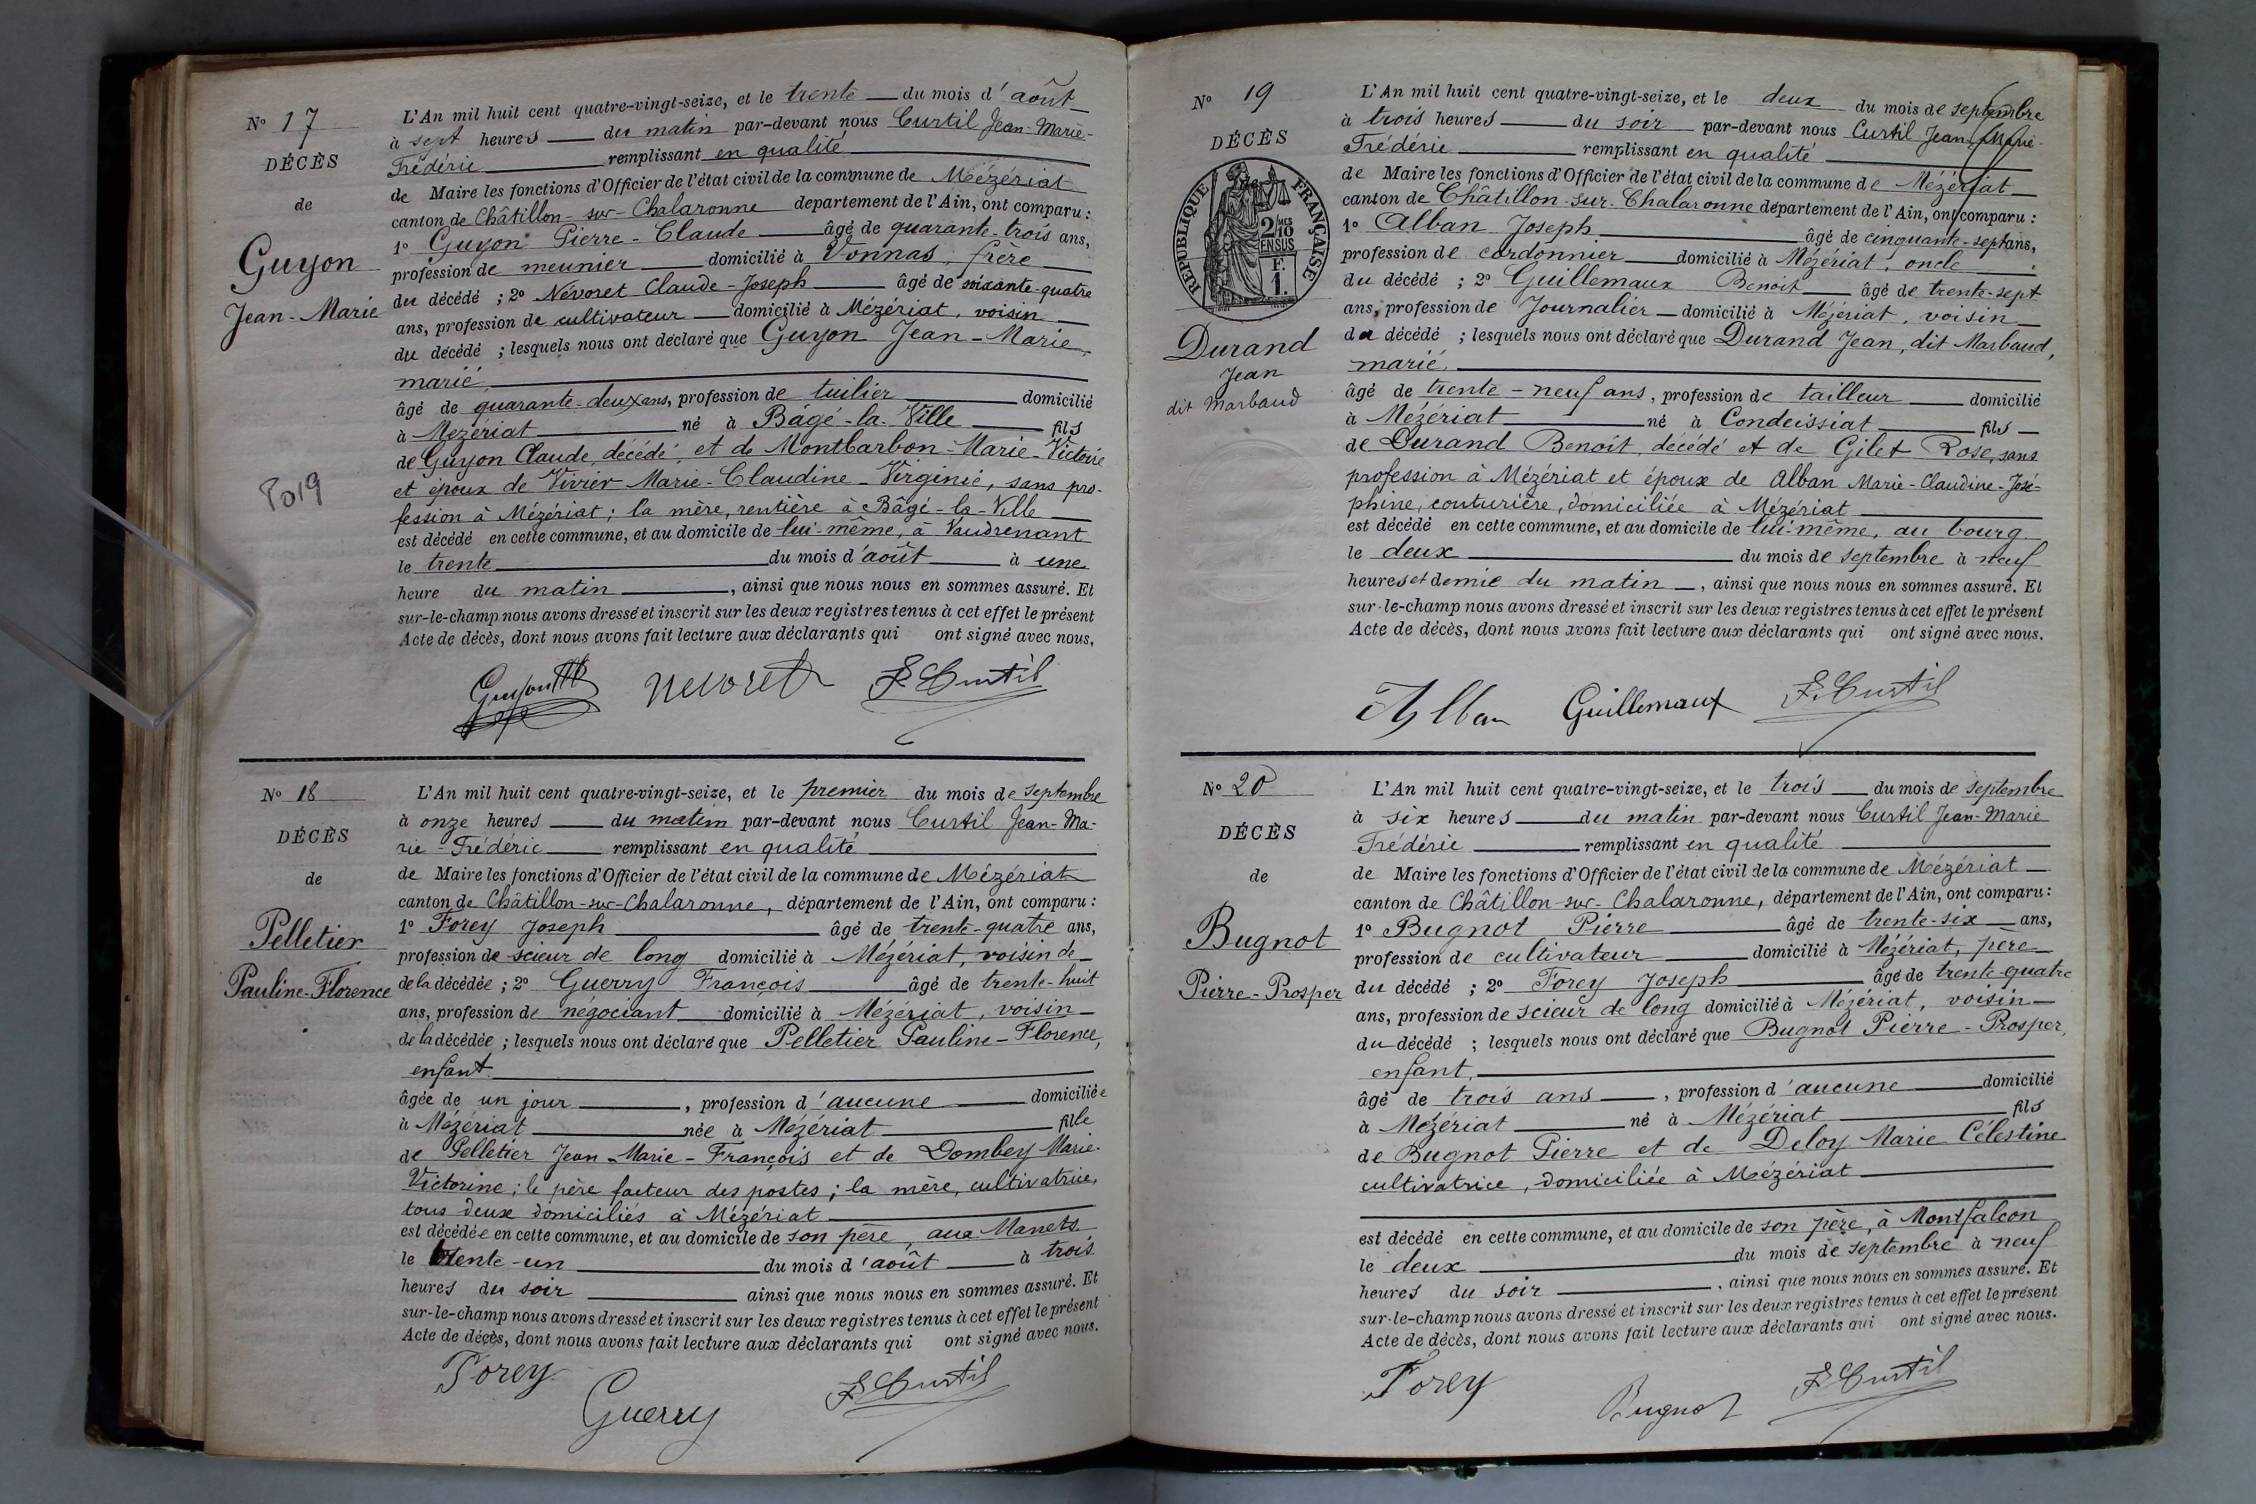 N° 17
DÉCÈS
de
Guyon
Jean-Marie
L'An mil huit cent quatre-vingt-seize, et le trente du mois d'août
à sept heures du matin par-devant nous Curtil Jean-Marie-
Frédéric remplissant en qualité
de Maire les fonctions d'Officier de l'état civil de la commune de Mézériat
canton de Châtillon-sur-Chalaronne departement de l'Ain, ont comparu :
1° Guyon Pierre-Claude âgé de quarante-trois ans,
profession de meunier domicilié à Vonnas, frère
du décédé ; 2° Névoret Claude-Joseph âgé de soixante-quatre
ans, profession de cultivateur domicilié à Mézériat, voisin
du décédé ; lesquels nous ont déclaré que Guyon Jean-Marie,
marié,
âgé de quarante-deux ans, profession de tuilier domicilié
à Mézériat né à Bâgé-la-Ville fils
de Guyon Claude, décédé, et de Montbarbon-Marie-Victoire
et époux de Vivier Marie-Claudine-Virginie, sans pro-
fession à Mézériat ; la mère, rentière à Bâgé-la-Ville
est décédé en cette commune, et au domicile de lui-même, à Vaudrenant
le trente du mois d'août à une
heure du matin, ainsi que nous nous en sommes assuré. Et
sur-le-champ nous avons dressé et inscrit sur les deux registres tenus à cet effet le présent
Acte de décès, dont nous avons fait lecture aux déclarants qui ont signé avec nous.
Guyon Nevoret F. Curtil
N° 18
DÉCÈS
de
Pelletier
Pauline-Florence
L'An mil huit cent quatre-vingt-seize, et le premier du mois de septembre
à onze heures du matin par-devant nous Curtil Jean-Ma-
rie-Frédéric remplissant en qualité
de Maire les fonctions d'Officier de l'état civil de la commune de Mézériat
canton de Châtillon-sur-Chalaronne, département de l'Ain, ont comparu :
1° Forey Joseph âgé de trente-quatre ans,
profession de scieur de long domicilié à Mézériat, voisin de
de la décédée ; 2° Guerry François âgé de trente-huit
ans, profession de négociant domicilié à Mézériat, voisin
de la décédée ; lesquels nous ont déclaré que Pelletier Pauline-Florence,
enfant
âgée de un jour, profession d'aucune domiciliée
à Mézériat née à Mézériat fille
de Pelletier Jean-Marie-François et de Dombey Marie-
Victorine ; le père facteur des postes ; la mère, cultivatrice,
tous deux domiciliés à Mézériat
est décédée en cette commune, et au domicile de son père, aux Manets
le trente-un du mois d'août à trois
heures du soir ainsi que nous nous en sommes assuré. Et
sur-le-champ nous avons dressé et inscrit sur les deux registres tenus à cet effet le présent
Acte de décès, dont nous avons fait lecture aux déclarants qui ont signé avec nous.
Forey Guerry F. Curtil
N° 19
DÉCÈS
RÉPUBLIQUE FRANÇAISE
2/10 EN SUS
F. 1.
Durand
Jean
dit Marbaud
L'An mil huit cent quatre-vingt-seize, et le deux du mois de septembre
à trois heures du soir par-devant nous Curtil Jean-Marie-
Frédéric remplissant en qualité
de Maire les fonctions d'Officier de l'état civil de la commune de Mézériat
canton de Châtillon-sur-Chalaronne département de l'Ain, ont comparu :
1° Alban Joseph âgé de cinquante-sept ans,
profession de cordonnier domicilié à Mézériat, oncle
du décédé ; 2° Guillemaux Benoit âgé de trente-sept
ans, profession de Journalier domicilié à Mézériat, voisin
du décédé ; lesquels nous ont déclaré que Durand Jean, dit Marbaud,
marié,
âgé de trente-neuf ans, profession de tailleur domicilié
à Mézériat né à Condeissiat fils
de Durand Benoît, décédé et de Gilet Rose, sans
profession à Mézériat et époux de Alban Marie-Claudine-José-
phine, couturière, domiciliée à Mézériat
est décédé en cette commune, et au domicile de lui-même, au bourg
le deux du mois de septembre à neuf
heures et demie du matin, ainsi que nous nous en sommes assuré. Et
sur-le-champ nous avons dressé et inscrit sur les deux registres tenus à cet effet le présent
Acte de décès, dont nous avons fait lecture aux déclarants qui ont signé avec nous.
Alban Guillemaux F. Curtil
N° 20
DÉCÈS
de
Bugnot
Pierre-Prosper
L'An mil huit cent quatre-vingt-seize, et le trois du mois de septembre
à six heures du matin par-devant nous Curtil Jean-Marie
Frédéric remplissant en qualité
de Maire les fonctions d'Officier de l'état civil de la commune de Mézériat
canton de Châtillon-sur-Chalaronne, département de l'Ain, ont comparu :
1° Bugnot Pierre âgé de trente-six ans,
profession de cultivateur domicilié à Mézériat, père
du décédé ; 2° Forey Joseph âgé de trente-quatre
ans, profession de scieur de long domicilié à Mézériat, voisin
du décédé ; lesquels nous ont déclaré que Bugnot Pierre-Prosper,
enfant,
âgé de trois ans, profession d'aucune domicilié
à Mézériat né à Mézériat fils
de Bugnot Pierre et de Deloy Marie Célestine
cultivatrice, domiciliée à Mézériat
est décédé en cette commune, et au domicile de son père, à Montfalcon
le deux du mois de septembre à neuf
heures du soir, ainsi que nous nous en sommes assuré. Et
sur-le-champ nous avons dressé et inscrit sur les deux registres tenus à cet effet le présent
Acte de décès, dont nous avons fait lecture aux déclarants qui ont signé avec nous.
Forey Bugnot F. Curtil